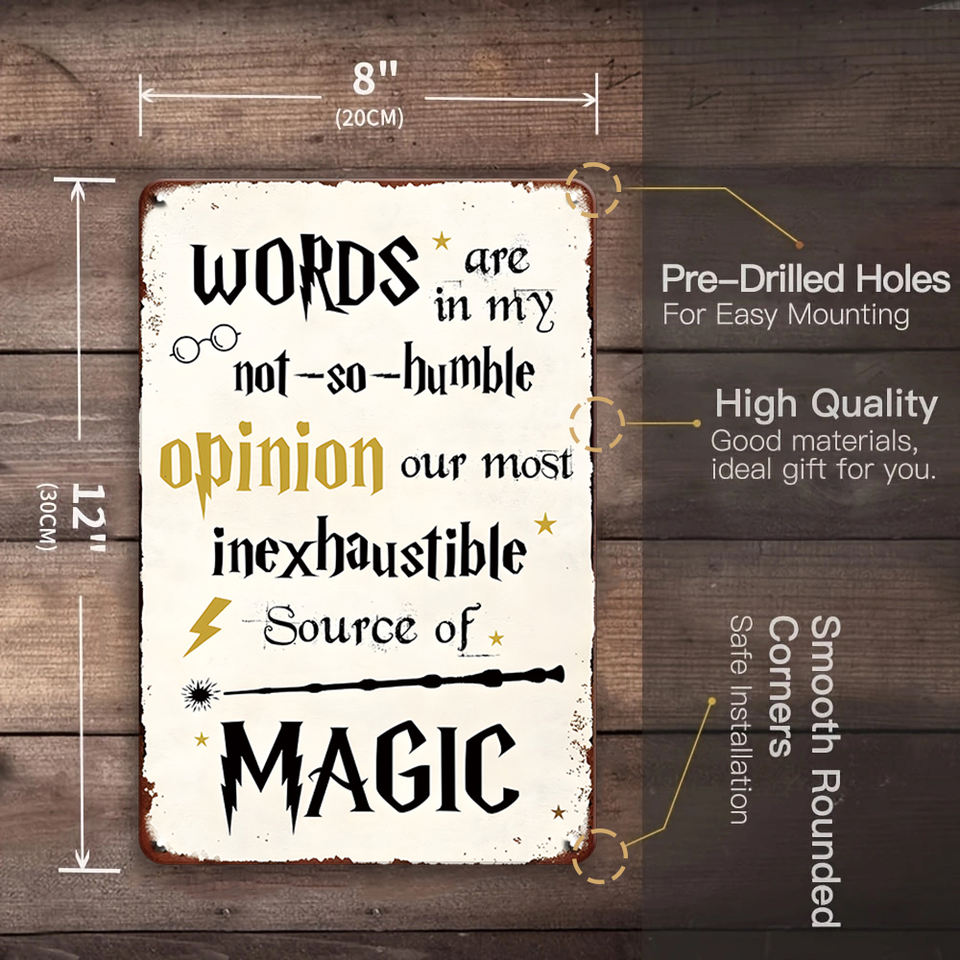 8"
(20CM)
12"
(30CM)
WORDS are
in my
not-so-humble
opinion our most
inexhaustible
Source of
MAGIC
Pre-Drilled Holes
For Easy Mounting
High Quality
Good materials,
ideal gift for you.
Smooth Rounded
Corners
Safe Installation